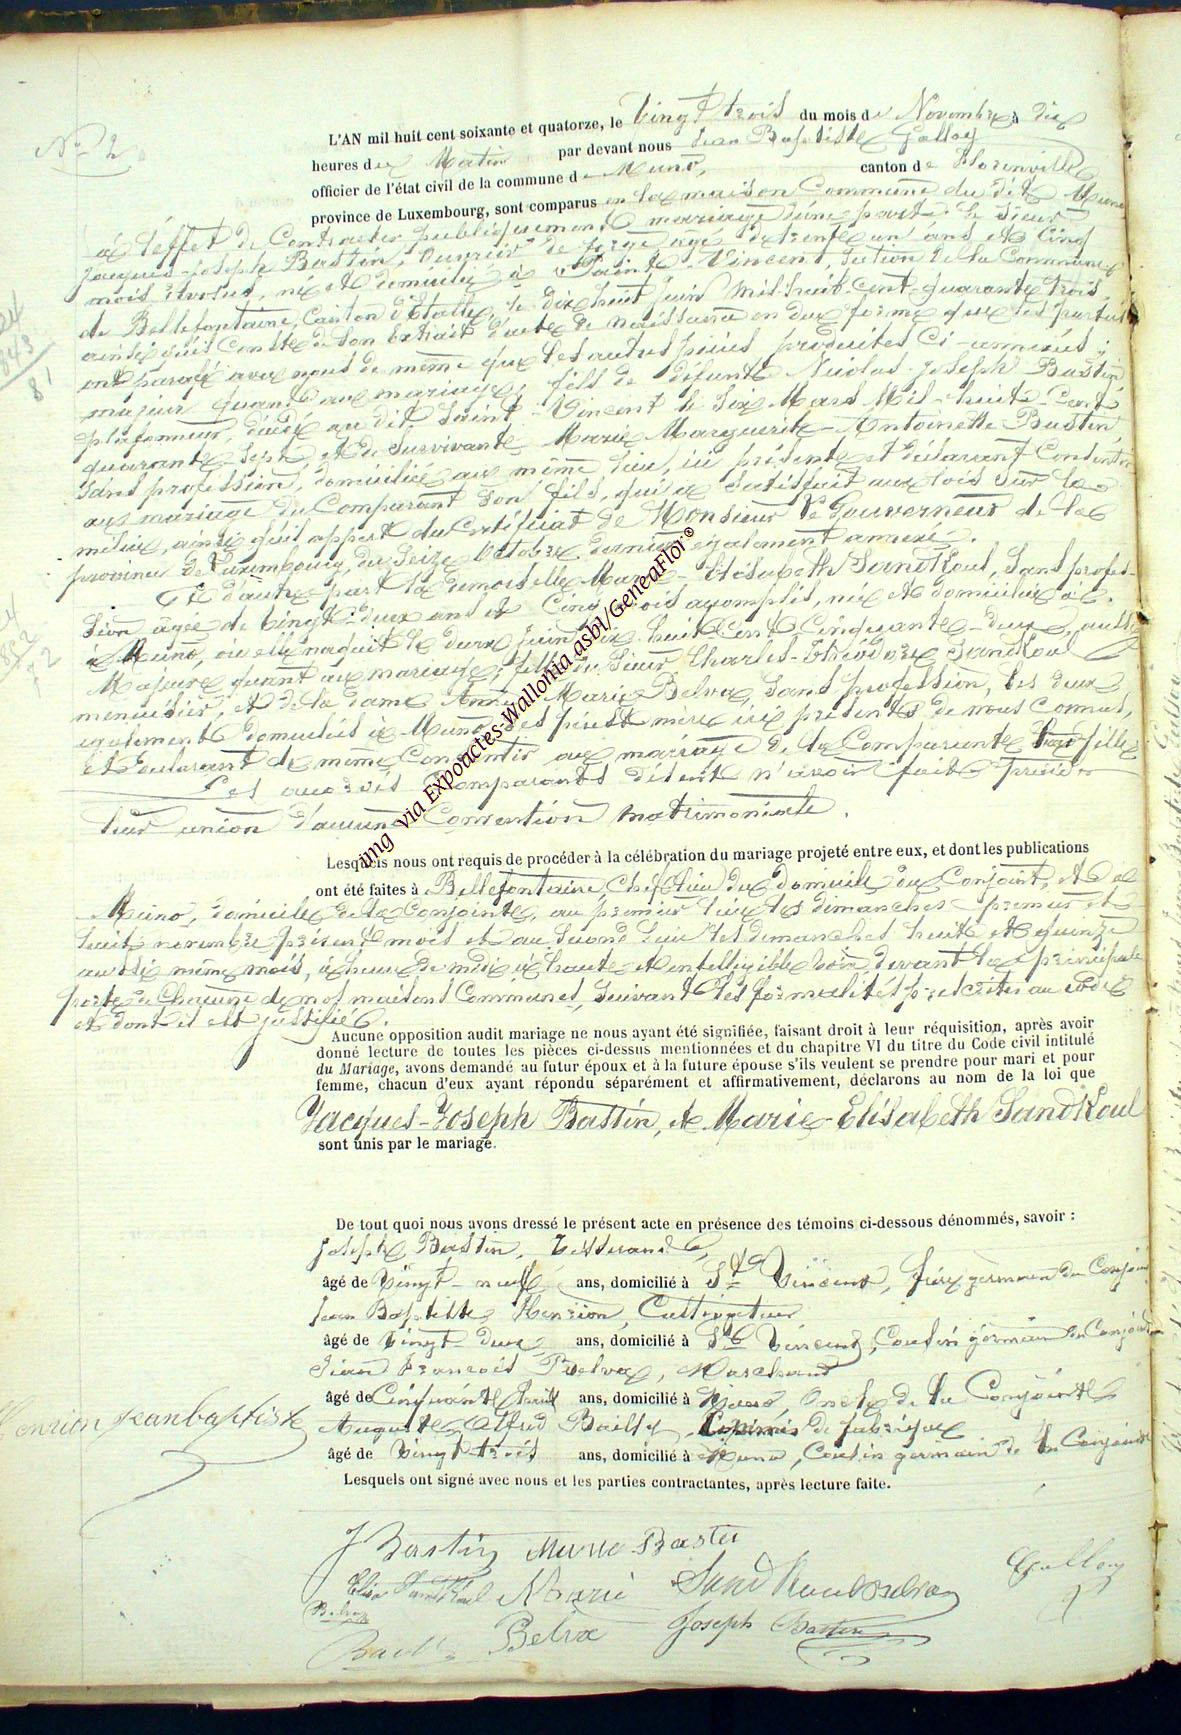 N° 2
L'AN mil huit cent soixante et quatorze, le Vingt trois du mois de Novembre à dix
heures du Matin par devant nous Jean Baptiste Galloy
officier de l'état civil de la commune de Muno, canton de Florenville
province de Luxembourg, sont comparus en la maison Commune du dit Muno
à l'effet de Contracter publiquement mariage d'une part le Sieur
Jacques-Joseph Bastin, ouvrier de forge âgé de trente un ans et Cinq
mois révolus, né et domicilié à Saint-Vincent, Section de la Commune
de Bellefontaine, Canton d'Etalle, le dix huit Juin Mil huit cent quarante trois,
ainsi qu'il Conste de Son Extrait d'acte de naissance en due forme que les parties
ont paraphé avec nous de même que les autres pièces produites Ci-annexées;
majeur quant au mariage; fils de défunt Nicolas-Joseph Bastin
plafonneur, décédé au dit Saint-Vincent le Six Mars Mil-huit-Cent
quarante-Sept et de Survivante Marie Marguerite-Antoinette Bastin
Sans profession, domiciliée au même lieu, ici présente et déclarant Consentir
au mariage du Comparant Son fils, qui a Satisfait aux lois sur la
milice, ainsi qu'il appert du Certificat de Monsieur le Gouverneur de la
province de Luxembourg, du Seize Octobre dernier également annexé.
Et d'autre part la demoiselle Marie-Elisabeth SandKoul, Sans profes-
sion âgée de Vingt-deux ans et Cinq mois accomplis, née et domiciliée
à Muno, où elle naquit le deux Juin dix huit Cent Cinquante-deux, aussi
Majeure quant au mariage; fille du Sieur Charles-Théodore SandKoul
menuisier, et de la dame Anne-Marie Belva, Sans profession, les deux
également domiciliés à Muno, Ses père et mère ici présents, de nous Connus,
et déclarant de même Consentir au mariage de la Comparante leur fille
Les quels Comparants disent n'avoir fait précéder
leur union d'aucune Convention matrimoniale.
Lesquels nous ont requis de procéder à la célébration du mariage projeté entre eux, et dont les publications
ont été faites à Bellefontaine, Chef lieu du domicile du Conjoint, et à
Muno, domicile de la Conjointe, au premier lieu les dimanches premier et
huit novembre présent mois et au Second lieu les dimanches huit et quinze
aussi même mois, à heure de midi à haute et intelligible voix, devant la principale
porte de Chacune de nos maisons Communes, Suivant les formalités prescrites au Code
et dont il est justifié.
Aucune opposition audit mariage ne nous ayant été signifiée, faisant droit à leur réquisition, après avoir
donné lecture de toutes les pièces ci-dessus mentionnées et du chapitre VI du titre du Code civil intitulé
du Mariage, avons demandé au futur époux et à la future épouse s'ils veulent se prendre pour mari et pour
femme, chacun d'eux ayant répondu séparément et affirmativement, déclarons au nom de la loi que
Jacques-Joseph Bastin, et Marie-Elisabeth SandKoul
sont unis par le mariage.
De tout quoi nous avons dressé le présent acte en présence des témoins ci-dessous dénommés, savoir :
Joseph Bastin, Tisserand,
âgé de Vingt-neuf ans, domicilié à St Vincent, frère germain du Conjoint
Jean Baptiste Henrion, Cultivateur
âgé de Vingt deux ans, domicilié à St Vincent, Cousin germain du Conjoint
Jean François Belva, Marchand
âgé de Cinquante huit ans, domicilié à Muno, Oncle de la Conjointe
Auguste Alfred Bailly, Commis de fabrique
âgé de Vingt trois ans, domicilié à Muno, Cousin germain de la Conjointe
Lesquels ont signé avec nous et les parties contractantes, après lecture faite.
henrion jeanbaptiste
J Bastin Marie Bastin
Elisa SandKoul Marie SandKoul Belva Galloy
Belva
Bailly Belva Joseph Bastin
img via Expoactes-Wallonia asbl/GeneaFlor©